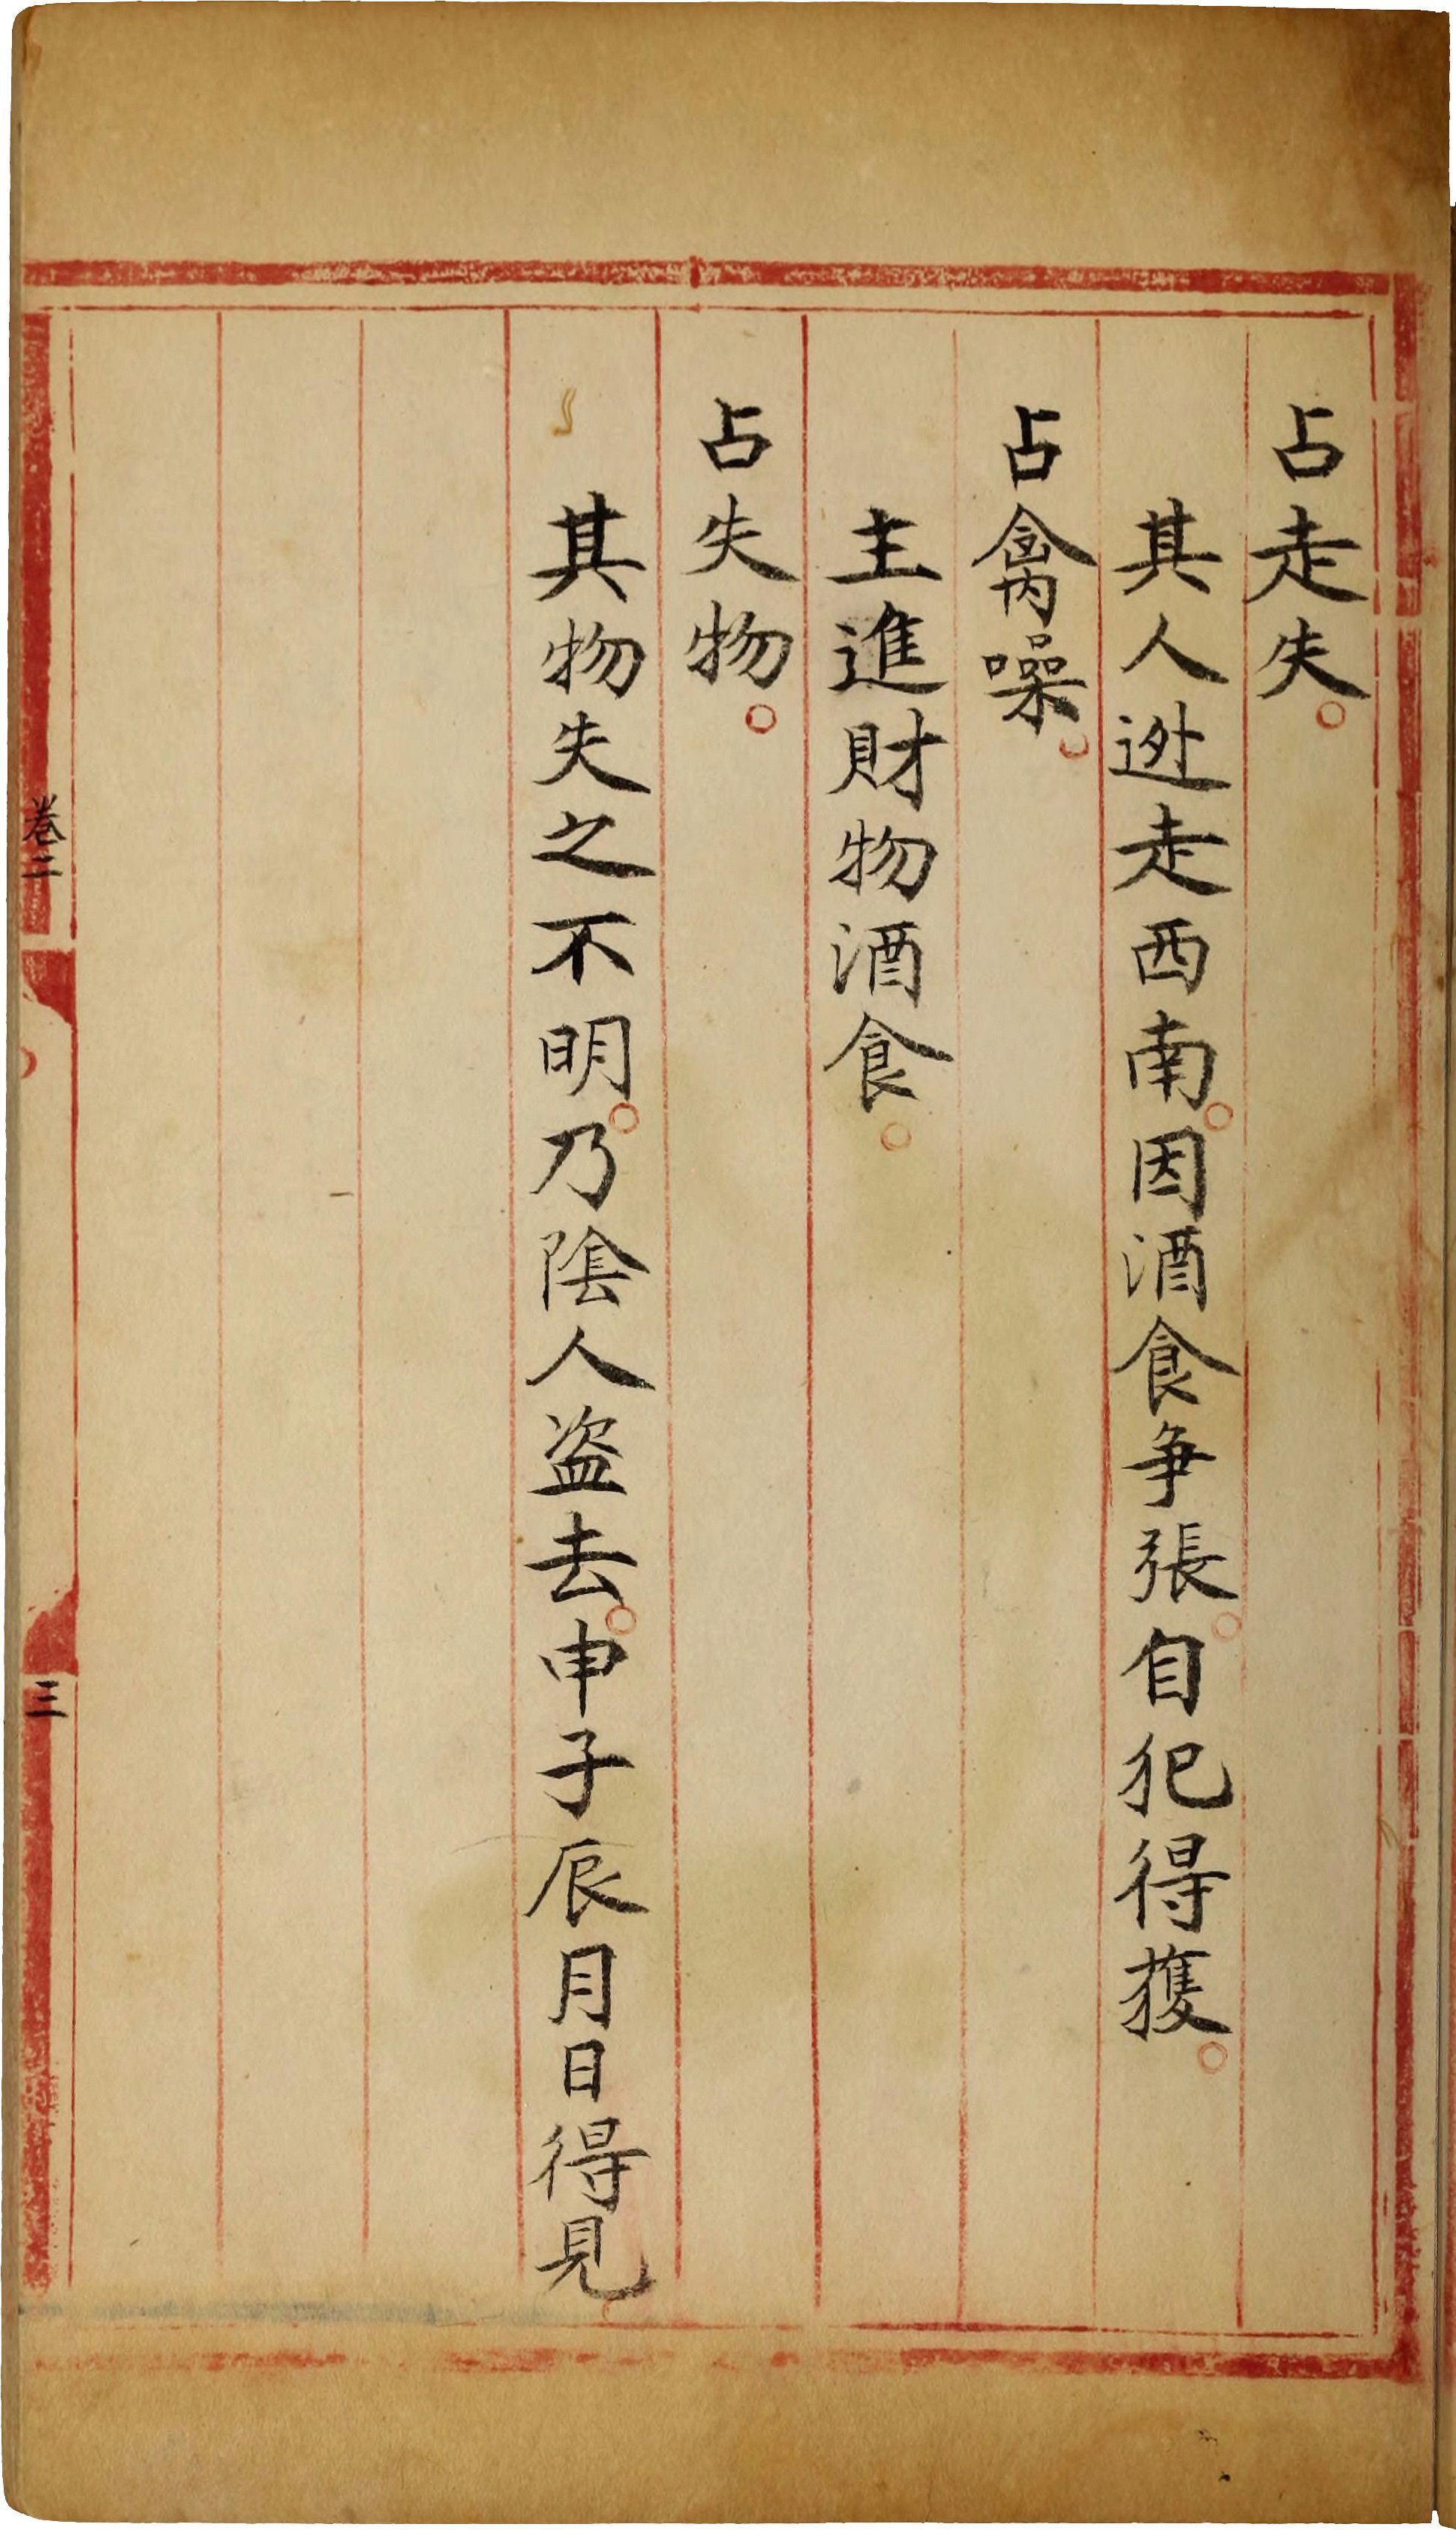 占走失
其人逃走西南因酒食爭張自犯得獲
占禽噪
主進財物酒食
占失物
其物失之不明乃陰人盗去申子辰月日得見
卷二
三